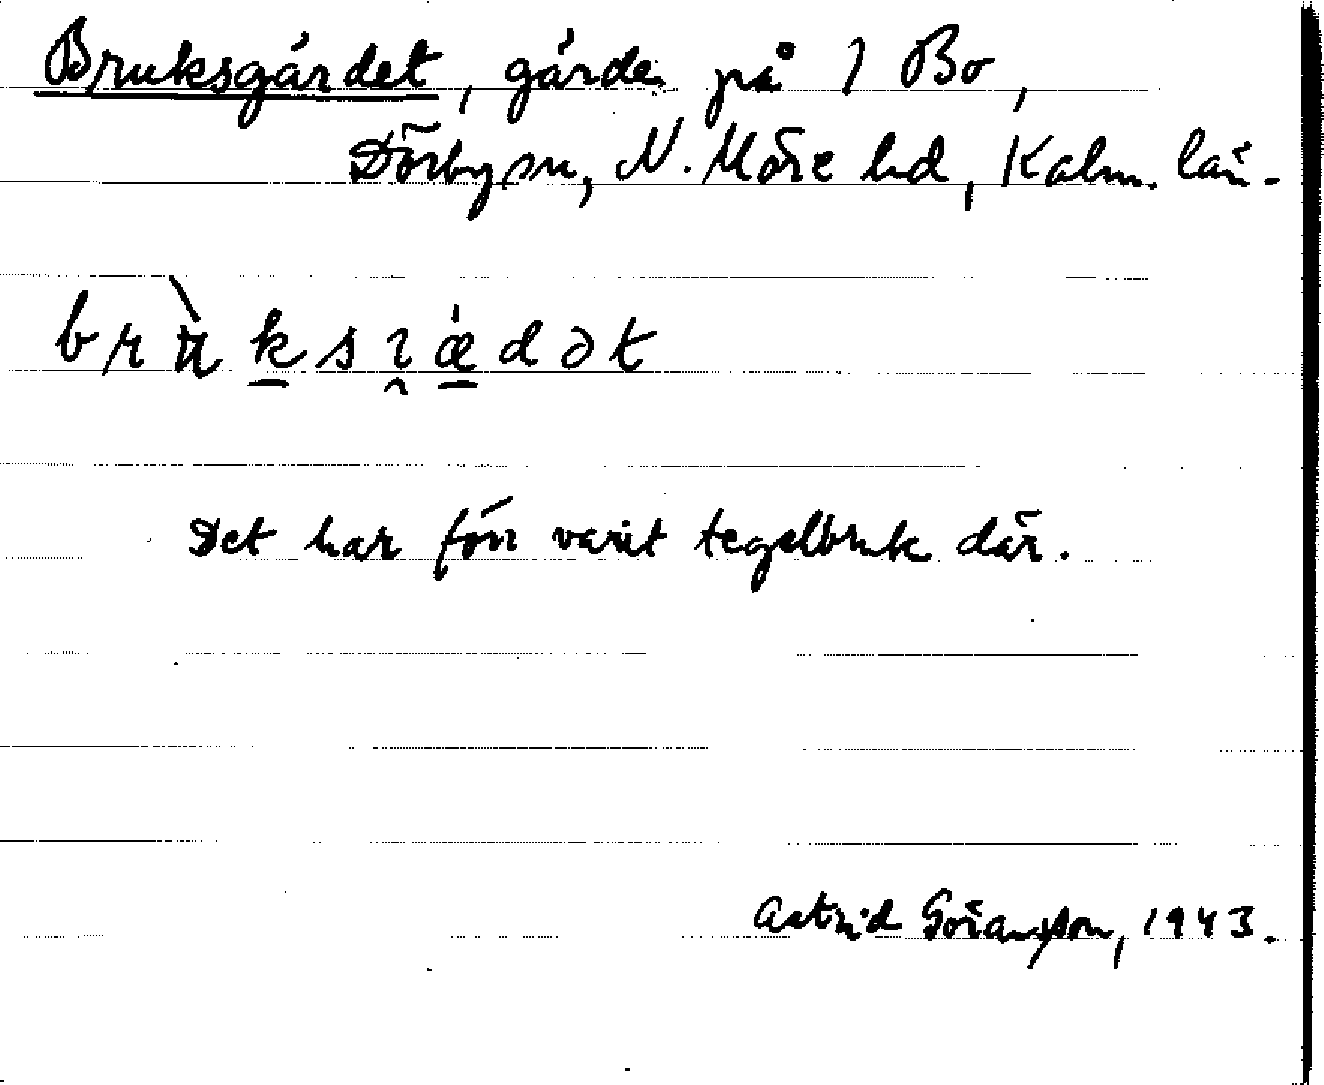 Bruksgärdet, gärde på 1 Bo,
Dörby sn, N. Möre hd, Kalm. län.
brùksɿædət
Det har förr varit tegelbruk där.
Astrid Göransson, 1943.